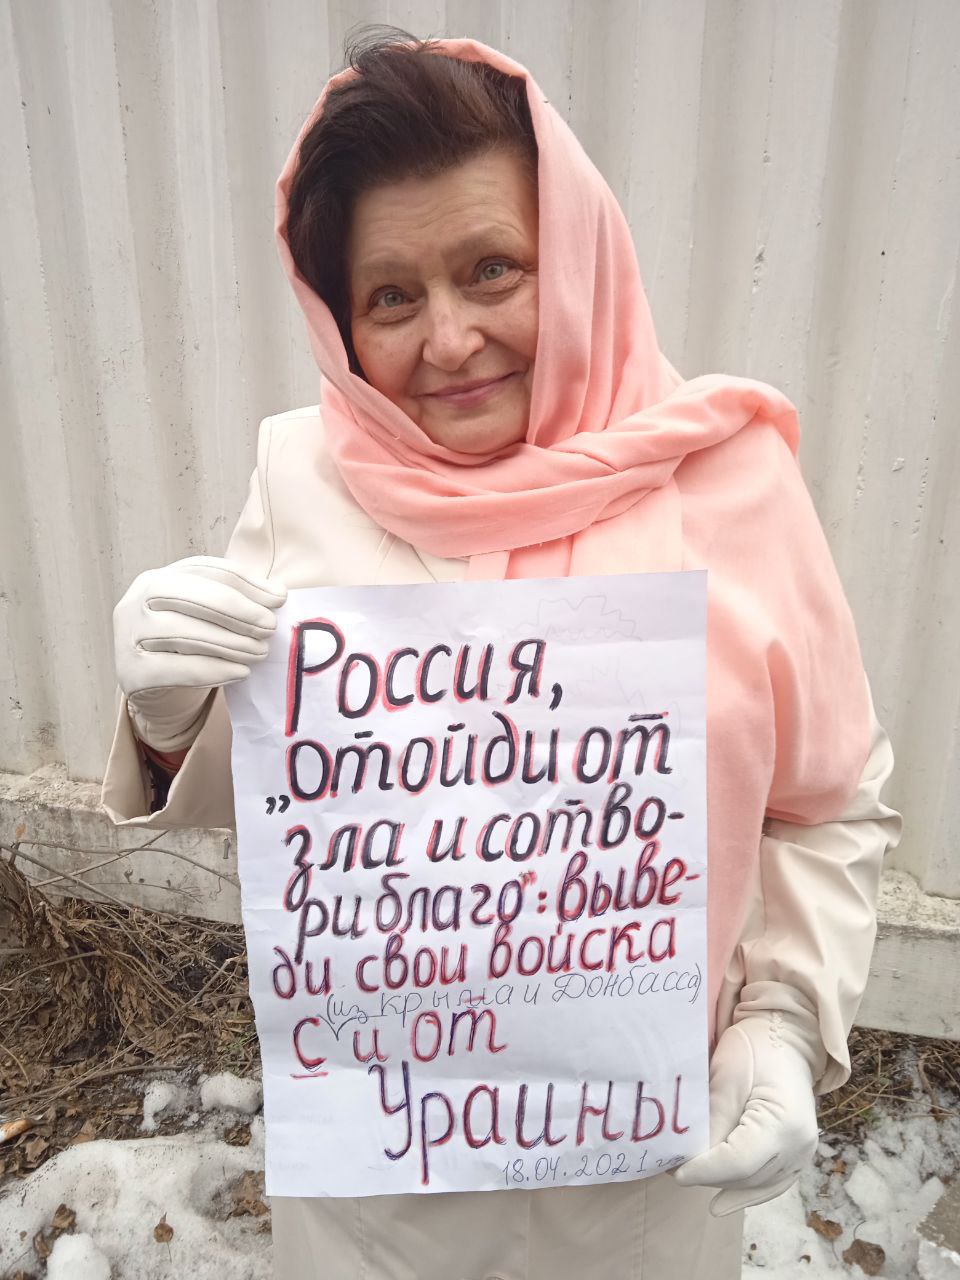 Россия,
„отойди от
зла и сотво-
ри благо": выве-
ди свои войска
(из Крыма и Донбасса)
с и от
Ураины
18.04.2021 г.